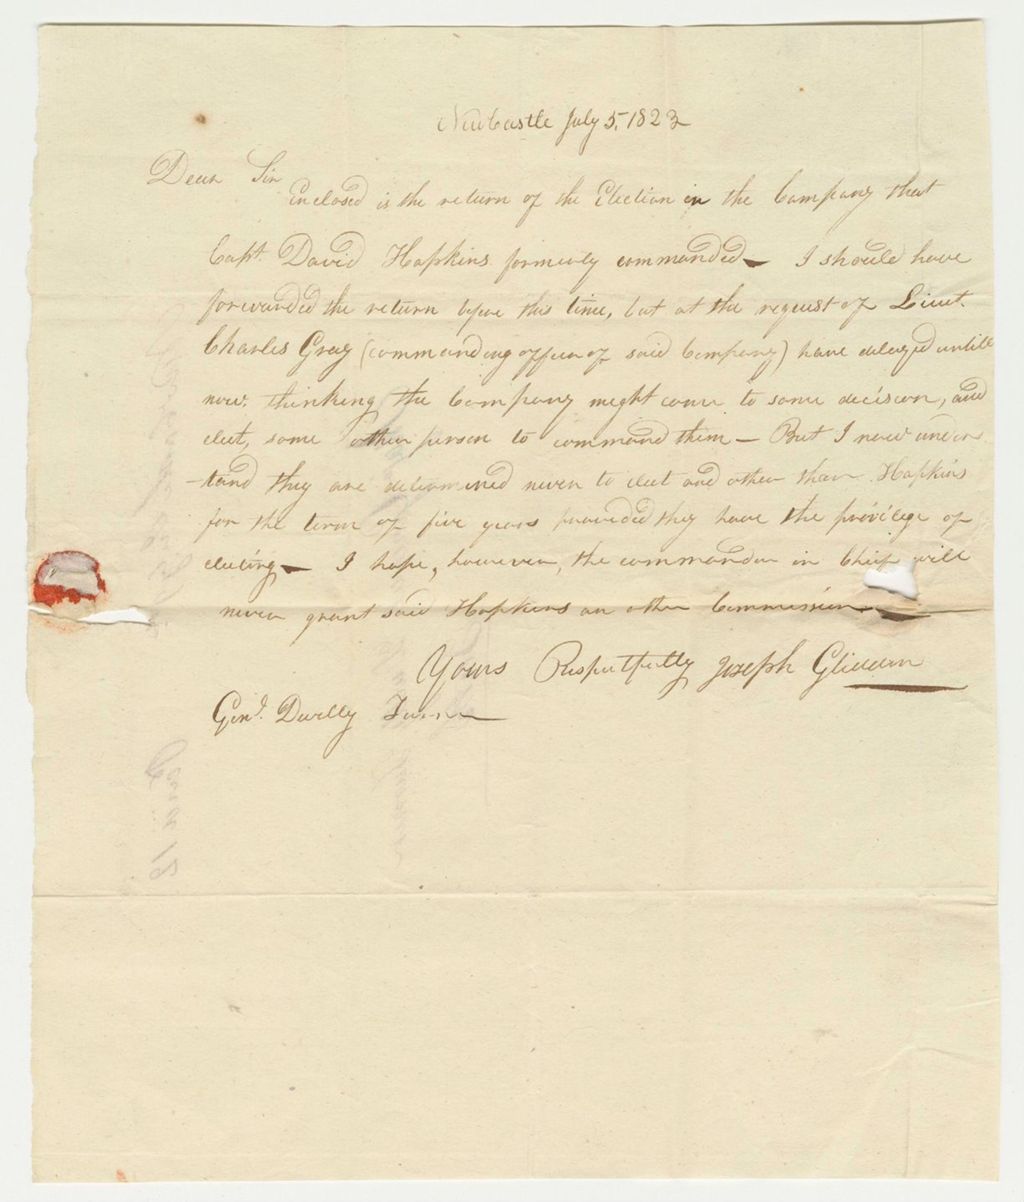 Newcastle July 5, 1823
Dear Sir
Enclosed is the return of the Election in the Company that
Capt. David Hopkins formerly commanded — I should have
forwarded the return before this time, but at the request of Lieut.
Charles Gray (commanding officer of said Company) have delayed untill
now. thinking the Company might come to some decision, and
elect, some other person to command them — But I now unders
-tand they are determined never to elect and other than Hopkins
for the term of five years provided they have the privilege of
electing — I hope, however, the commander in Chief will
never grant said Hopkins an other Commission
Yours Respectfully Joseph Glidden
Genl. Denny Turner